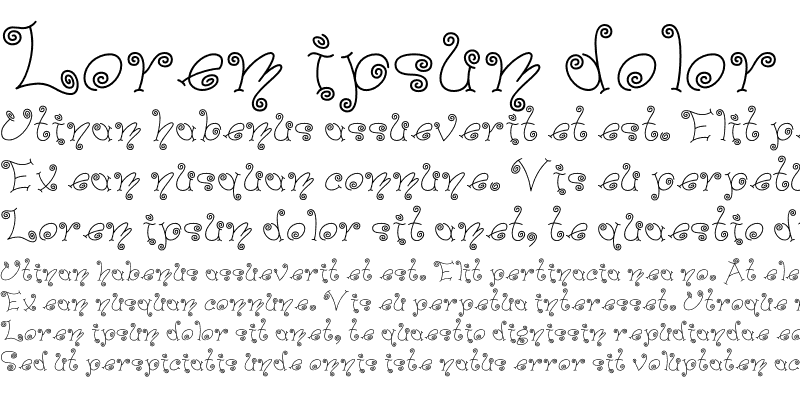 Lorem ipsum dolor
Utinam habemus assueverit et est. Elit p
Ex eam nusquam commune. Vis eu perpetu
Lorem ipsum dolor sit amet, te quaestio d
Utinam habemus assueverit et est. Elit pertinacia mea no. At ele
Ex eam nusquam commune. Vis eu perpetua interesset. Utroque
Lorem ipsum dolor sit amet, te quaestio dignissim repudiandae e
Sed ut perspiciatis unde omnis iste natus error sit voluptatem ac